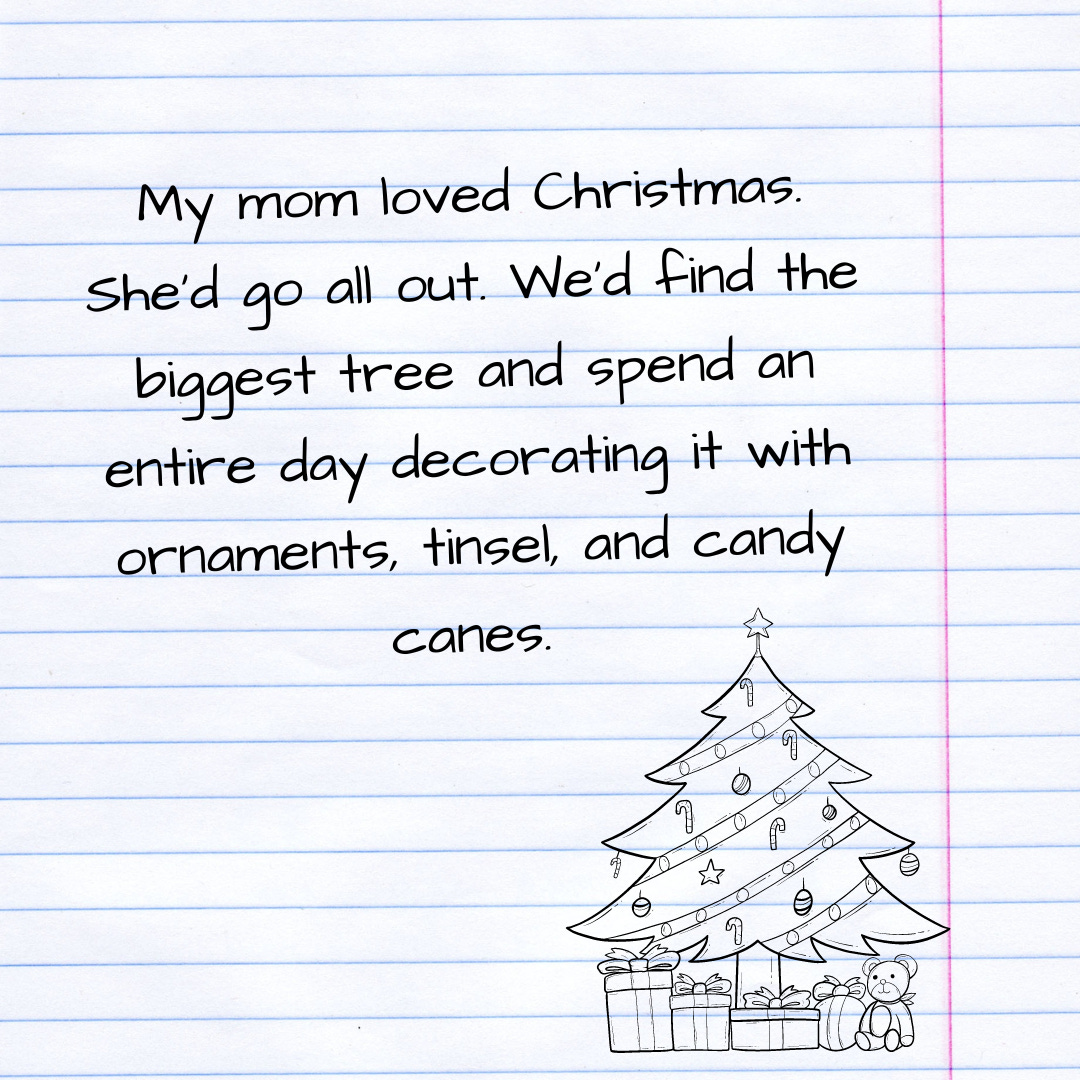 My mom loved Christmas.
She'd go all out. We'd find the
biggest tree and spend an
entire day decorating it with
ornaments, tinsel, and candy
canes.